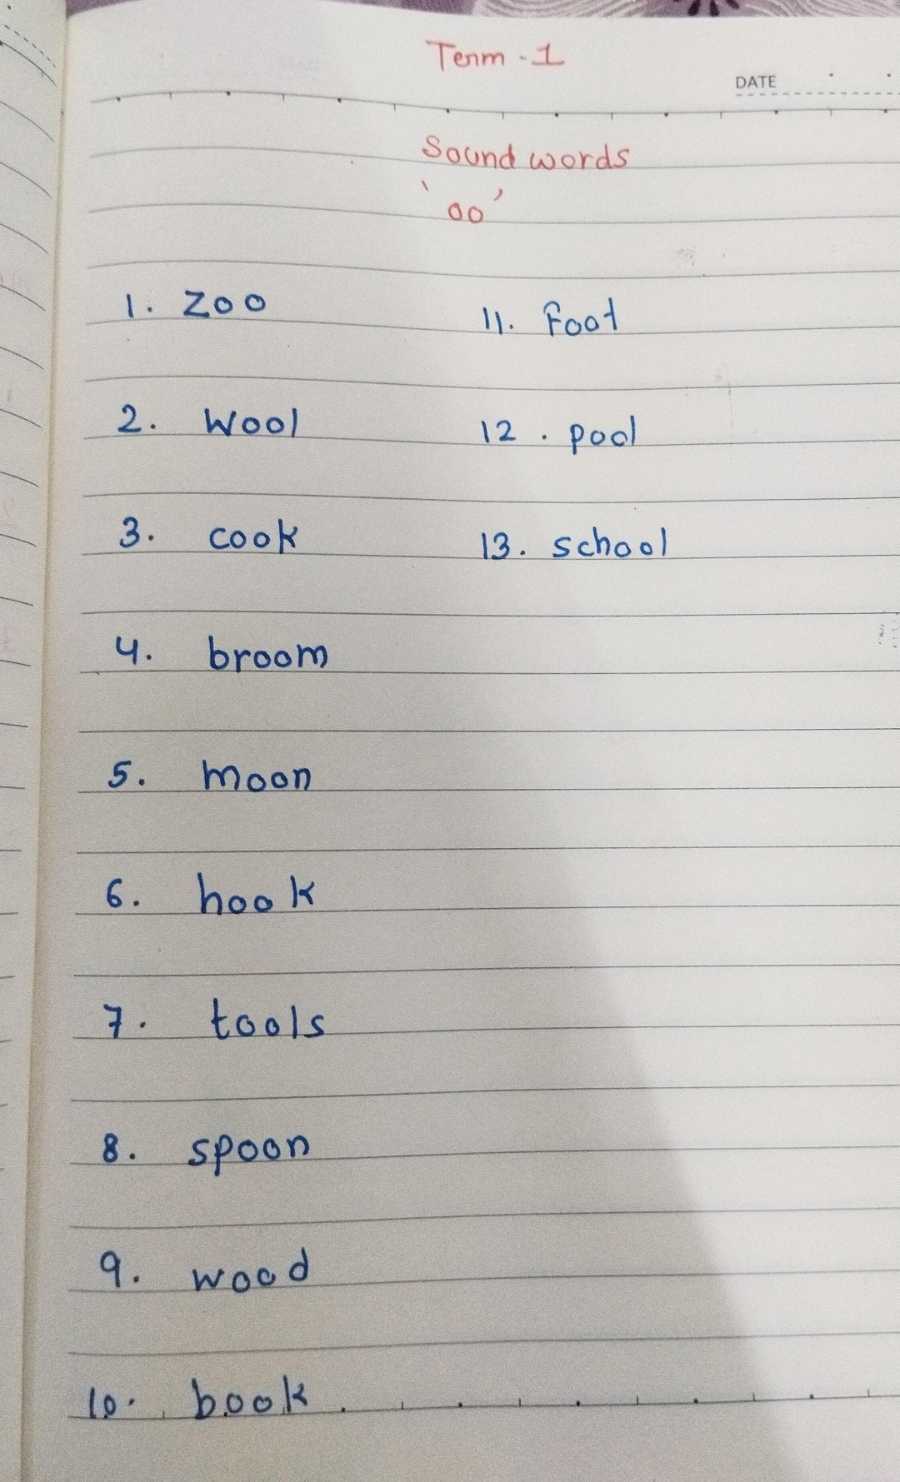 Term - 1
DATE
Sound words
'oo'
1. Zoo
2. Wool
3. cook
4. broom
5. moon
6. hook
7. tools
8. spoon
9. wood
10. book
11. Foot
12. pool
13. school